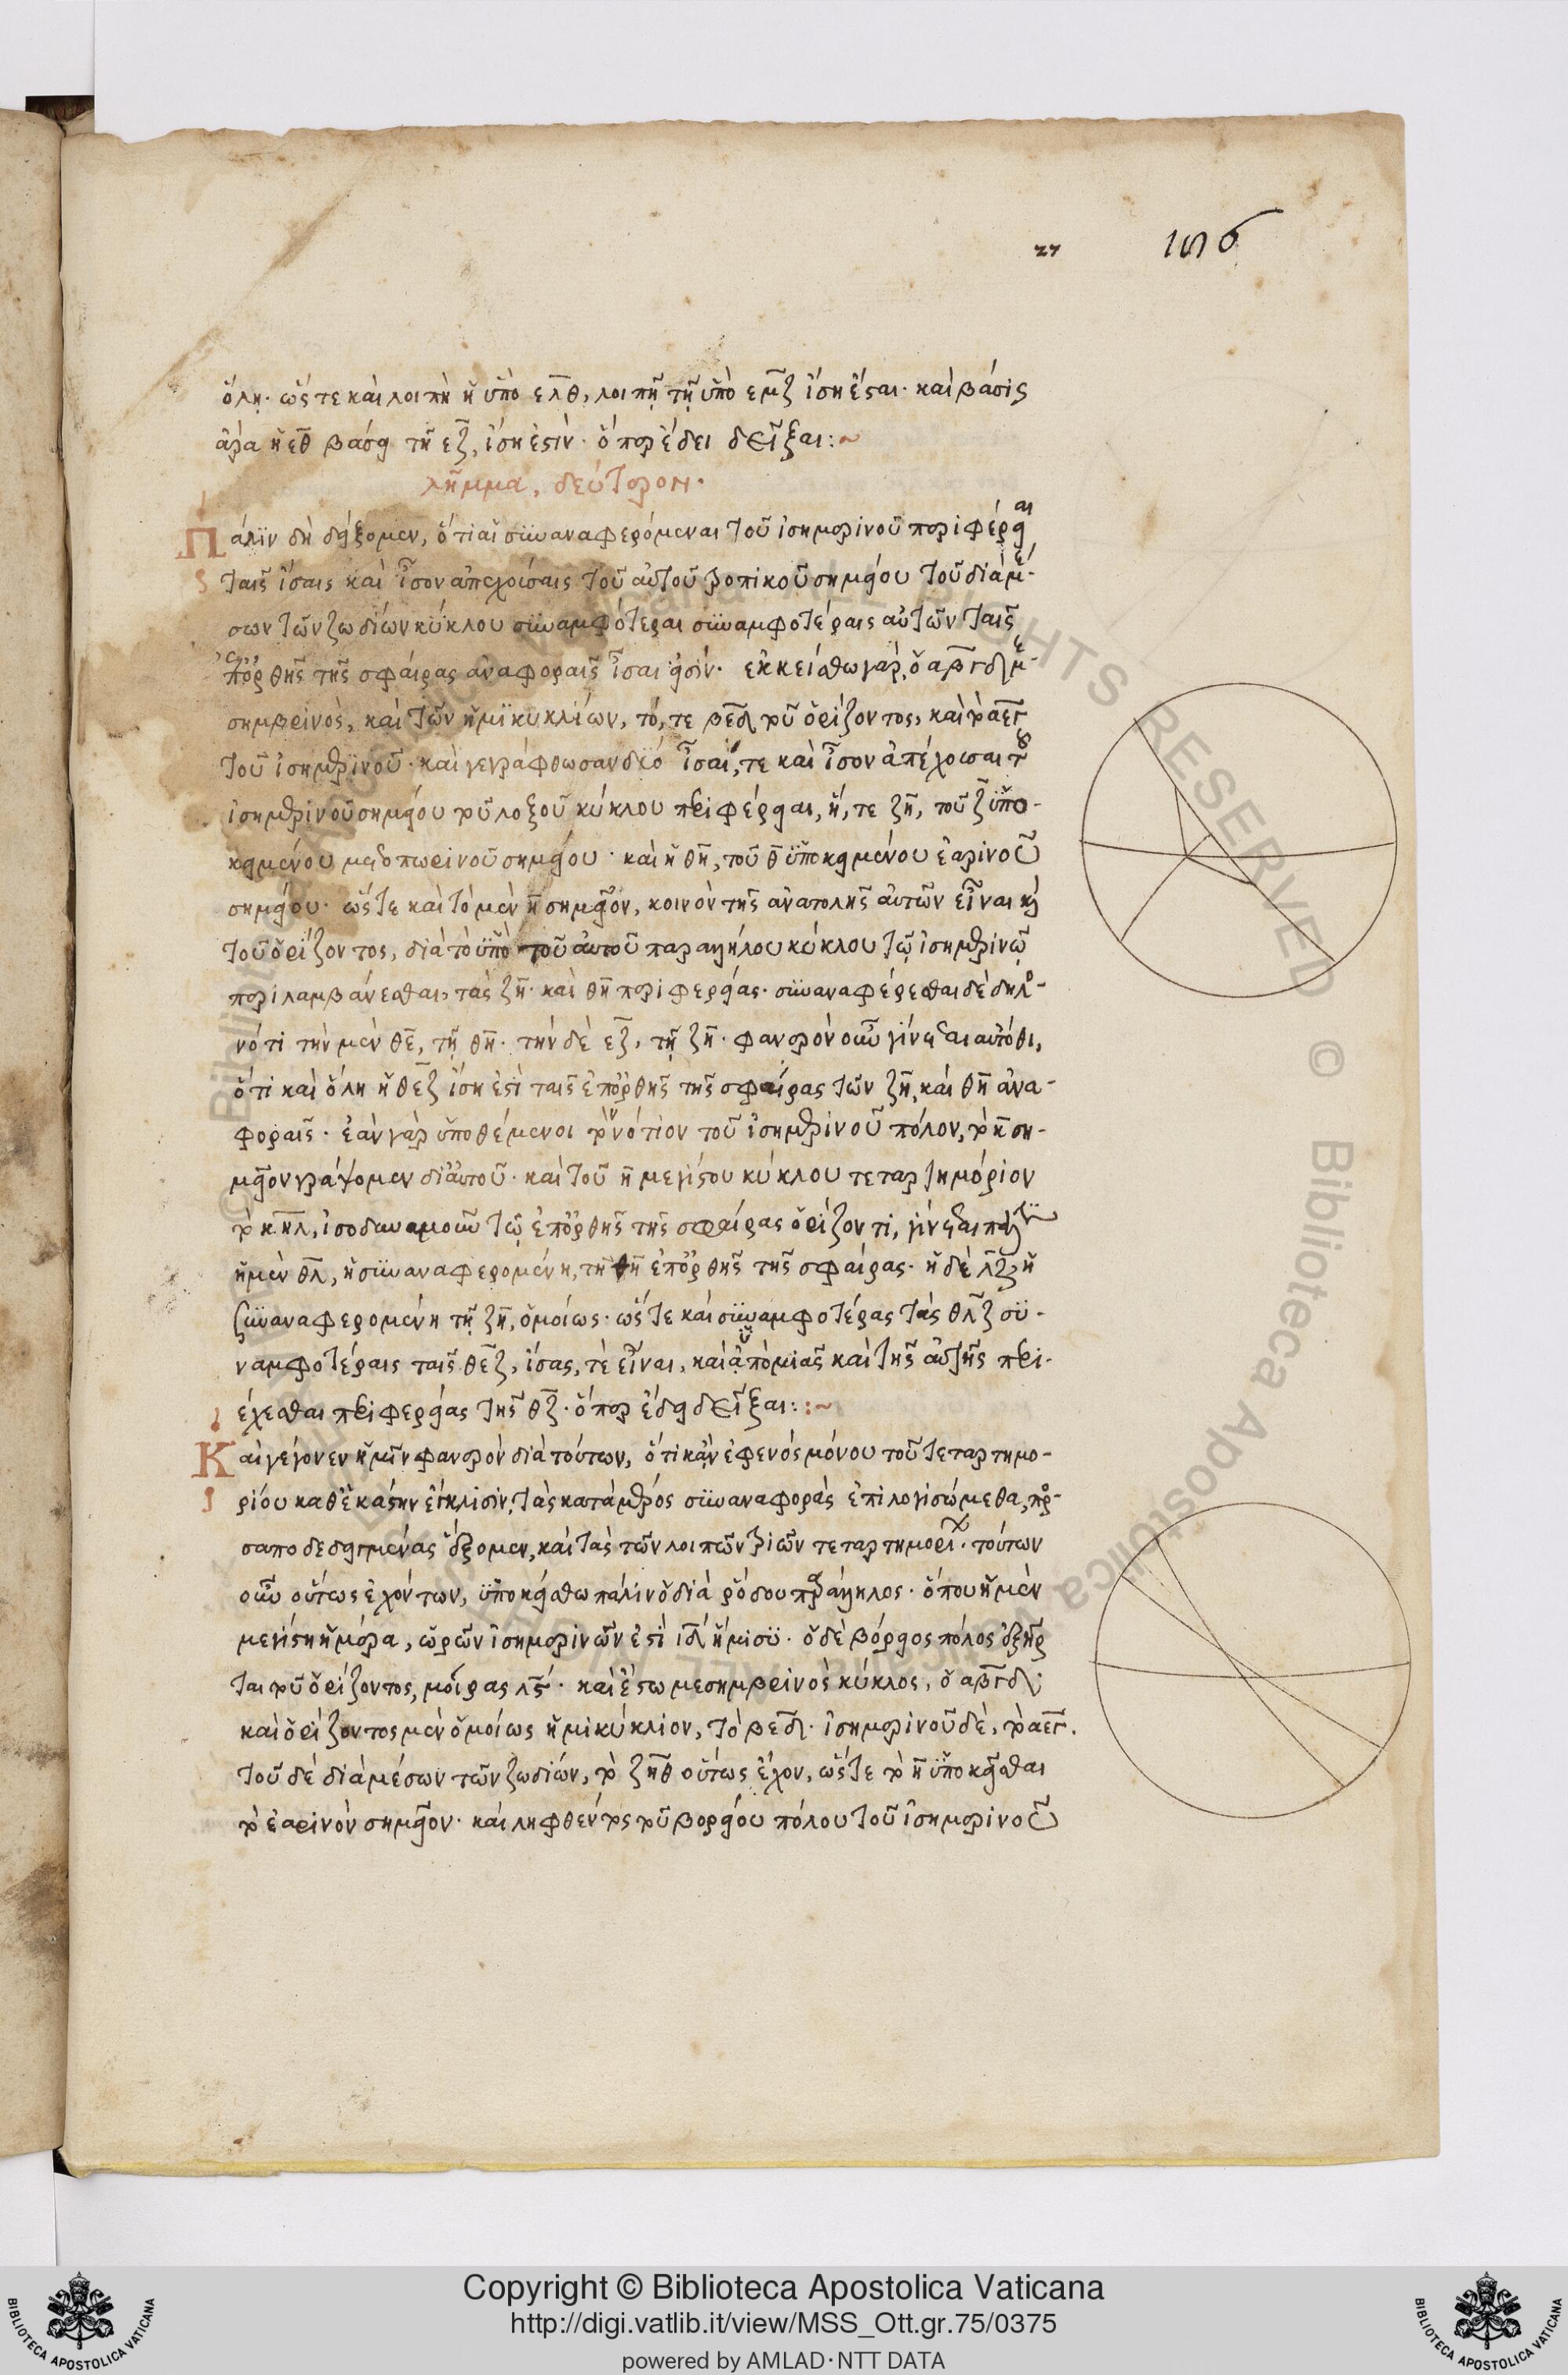 27 186
ὅλη· ὥστε καὶ λοιπὴ ἡ ὑπὸ ελθ, λοιπῇ τῇ ὑπὸ εμζ ἴση ἔσται· καὶ βάσις
ἄρα ἡ εθ βάσει τῇ εζ, ἴση ἐστίν· ὅπερ ἔδει δεῖξαι:~
λῆμμα, δεύτερον·
Πάλιν δὴ δείξομεν, ὅτι αἱ συναναφερόμεναι τοῦ ἰσημερινοῦ περιφέρειαι
ταῖς ἴσαις καὶ ἴσον ἀπεχούσαις τοῦ αὐτοῦ τροπικοῦ σημείου τοῦ διὰ μέ-
σων τῶν ζωδίων κύκλου συναμφότεραι συναμφοτέραις αὐτῶν ταῖς
ἐπ' ὀρθῆς τῆς σφαίρας ἀναφοραῖς ἴσαι εἰσίν· ἐκκείσθω γὰρ, ὁ αβγδ με-
σημβρινὸς, καὶ τῶν ἡμικυκλίων, τό, τε βεδ τοῦ ὁρίζοντος, καὶ τὸ αεγ
τοῦ ἰσημερινοῦ· καὶ γεγράφθωσαν δύο ἴσαι, τε καὶ ἴσον ἀπέχουσαι τοῦ
ἰσημερινοῦ σημείου τοῦ λοξοῦ κύκλου περιφέρειαι, ἥ, τε ζη, τοῦ ζ ὑπο-
κειμένου μετοπωρινοῦ σημείου· καὶ ἡ θη, τοῦ θ ὑποκειμένου ἐαρινοῦ
σημείου· ὥστε καὶ τὸ μὲν η σημεῖον, κοινὸν τῆς ἀνατολῆς αὐτῶν εἶναι καὶ
τοῦ ὁρίζοντος, διὰ τὸ ὑπὸ τοῦ αὐτοῦ παραλλήλου κύκλου τῷ ἰσημερινῷ
περιλαμβάνεσθαι, τὰς ζη· καὶ θη περιφερείας· συναναφέρεσθαι δὲ δηλο-
νότι τὴν μὲν θε, τῇ θη· τὴν δὲ εζ, τῇ ζη· φανερὸν οὖν γίνεται αὐτόθι,
ὅτι καὶ ὅλη ἡ θεζ ἴση ἐστὶ ταῖς ἐπ' ὀρθῆς τῆς σφαίρας τῶν ζη, καὶ θη ἀνα-
φοραῖς· ἐὰν γὰρ ὑποθέμενοι τὸν νότιον τοῦ ἰσημερινοῦ πόλον, τὸ κ ση-
μεῖον γράψομεν δι' αὐτοῦ· καὶ τοῦ η μεγίστου κύκλου τεταρτημόριον
τὸ κηλ, ἰσοδυναμοῦν τῷ ἐπ' ὀρθῆς τῆς σφαίρας ὁρίζοντι, γίνεται πάλιν
ἡ μὲν θλ, ἡ συναναφερομένη, τῇ θη ἐπ' ὀρθῆς τῆς σφαίρας· ἡ δὲ λζ, ἡ
συναναφερομένη τῇ ζη, ὁμοίως· ὥστε καὶ συναμφοτέρας τὰς θλζ συ-
ναμφοτέραις ταῖς θεζ, ἴσας, τὲ εἶναι, καὶ ὑπὸ μιᾶς καὶ τῆς αὐτῆς περι-
έχεσθαι περιφερείας τῆς θζ· ὅπερ ἔδει δεῖξαι::~
Καὶ γέγονεν ἡμῖν φανερὸν διὰ τούτων, ὅτι κἂν ἐφ' ἑνὸς μόνου τοῦ τεταρτημο-
ρίου καθ' ἑκάστην ἔγκλισιν, τὰς κατὰ μέρος συναναφορὰς ἐπιλογισώμεθα, προ-
σαποδεδειγμένας ἕξομεν, καὶ τὰς τῶν λοιπῶν τριῶν τεταρτημορίων· τούτων
οὖν οὕτως ἐχόντων, ὑποκείσθω πάλιν ὁ διὰ ῥόδου παράλληλος· ὅπου ἡ μὲν
μεγίστη ἡμέρα, ὡρῶν ἰσημερινῶν ἐστὶ ιδ ἥμισυ· ὁ δὲ βόρειος πόλος ἐξῆρ
ται τοῦ ὁρίζοντος, μοίρας λς· καὶ ἔστω μεσημβρινὸς κύκλος, ὁ αβγδ·
καὶ ὁρίζοντος μὲν ὁμοίως ἡμικύκλιον, τὸ βεδ· ἰσημερινοῦ δὲ, τὸ αεγ.
τοῦ δὲ διὰ μέσων τῶν ζωδίων, τὸ ζηθ οὕτως ἔχον, ὥστε τὸ η ὑποκεῖσθαι
τὸ ἐαρινὸν σημεῖον· καὶ ληφθέντος τοῦ βορείου πόλου τοῦ ἰσημερινοῦ
Copyright © Biblioteca Apostolica Vaticana
http://digi.vatlib.it/view/MSS_Ott.gr.75/0375
powered by AMLAD·NTT DATA
BIBLIOTECA APOSTOLICA VATICANA
BIBLIOTECA APOSTOLICA VATICANA